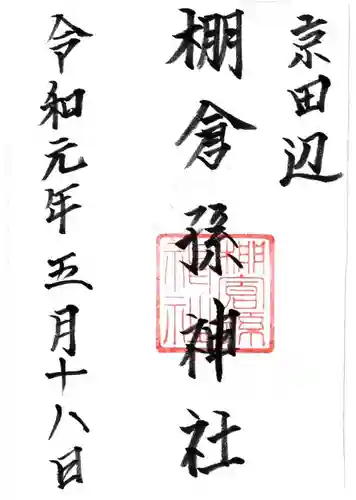 京田辺
棚倉孫神社
棚倉孫神社
令和元年五月十八日